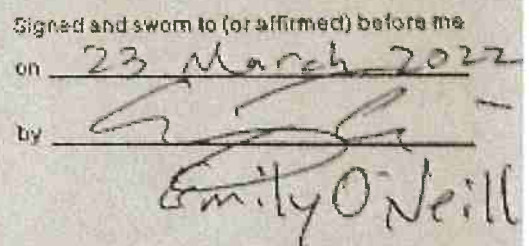 Signed and sworn to (or affirmed) before me
on 23 March 2022
by
Emily O'Neill